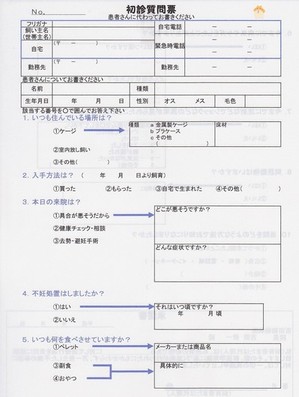 No.
初診質問票
患者さんに代わってお書きください
フリガナ
飼い主名
(世帯主名)
自宅電話 － －
自宅 (〒 － )
緊急時電話 － －
勤務先 (〒 － )
勤務先 － －
患者さんについてお書きください
名前 種類
生年月日 年 月 日 性別 オス メス 毛色
該当する番号を○で囲んでお答え下さい
1. いつも住んでいる場所は？
①ケージ
種類 a 金属製ケージ 床材
b プラケース
c その他
( )
②室内放し飼い
③その他( )
2. 入手方法は？ ( 年 月 日より飼育)
①買った ②もらった ③自宅で生まれた ④その他( )
3. 本日の来院は？
①具合が悪そうだから
どこが悪そうですか？
②健康チェック・相談
③去勢・避妊手術
どんな症状ですか？
4. 不妊処置はしましたか？
①はい
それはいつ頃ですか？
年 月 頃
②いいえ
5. いつも何を食べさせていますか？
①ペレット
メーカーまたは商品名
③副食
具体的に
④おやつ